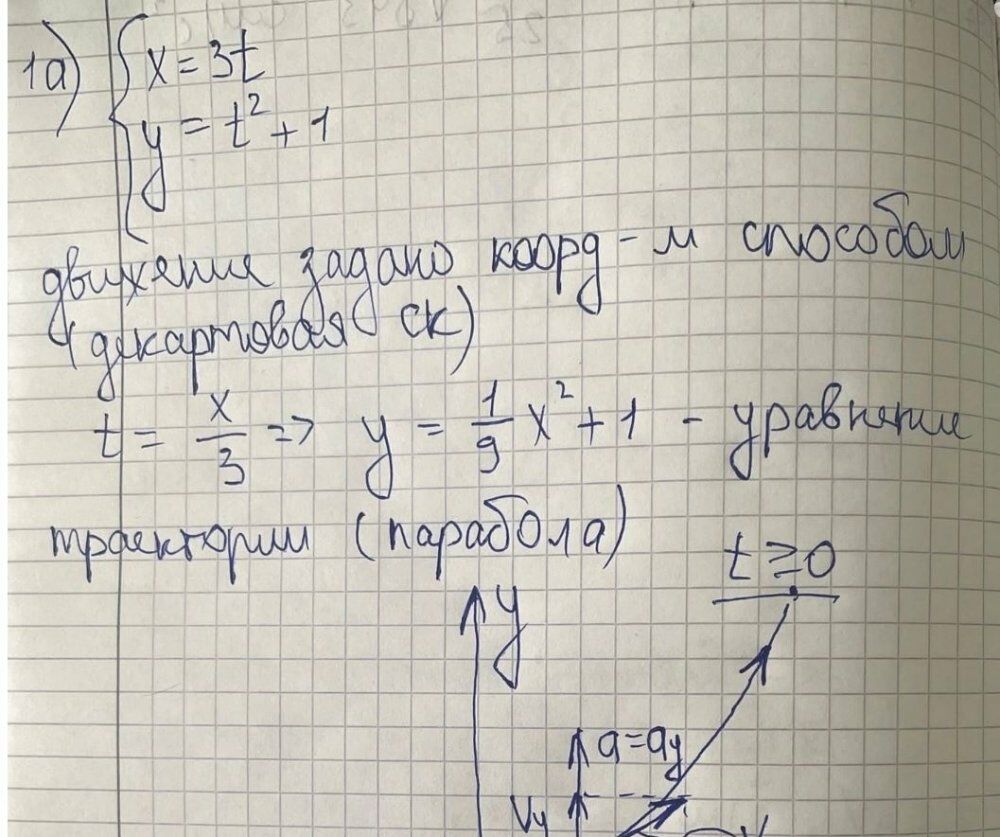 1а) { x = 3t
y = t² + 1
движение задано коорд-м способом
(декартовая СК)
t = x/3 => y = 1/9 x² + 1 - уравнение
траектории (парабола)
t ≥ 0
y
a = ay
Vy
V